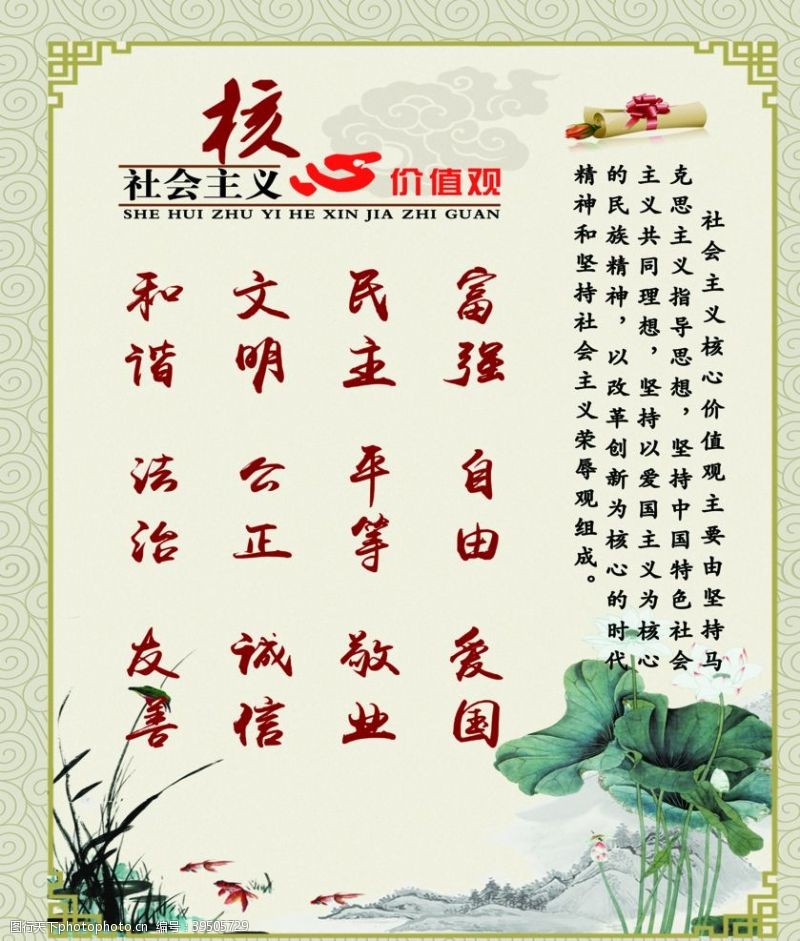 社会主义核心价值观
SHE HUI ZHU YI HE XIN JIA ZHI GUAN
富强
民主
文明
和谐
自由
平等
公正
法治
爱国
敬业
诚信
友善
社会主义核心价值观主要由坚持马
克思主义指导思想，坚持中国特色社会
主义共同理想，坚持以爱国主义为核心
的民族精神，以改革创新为核心的时代
精神和坚持社会主义荣辱观组成。
图行天下photophoto.cn 编号:39505729